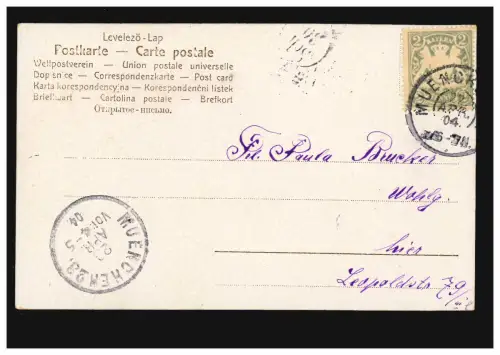 Levelező-Lap
Postkarte — Carte postale
Weltpostverein — Union postale universelle
Dopisnice — Correspondenzkarte — Post card
Karta korespondencyjna — Korespondenční lístek
Briefkaart — Cartolina postale — Brefkort
Открытое-письмо.
2 2
BAYERN
MUENCH
APR.
04.
Frl. Paula Brucker
Wohlg.
hier
Leopoldstr 79/
MUENCHEN 23.
04
VOR